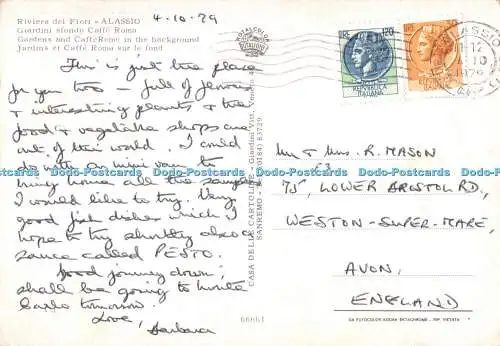 4-10-79
Riviera dei Fiori - ALASSIO
Giardini sfondo Caffè Roma
Gardens and CaffèRome in the background
Jardins et Caffè Roma sur le fond
This is just the place
for you two - full of flowers
& interesting plants & the
food & vegetable shops are
out of this world. I could
do with a mini van to
bring home all the samples
I would like to try. Very
good fish dishes which I
hope to try shortly also a
sauce called PESTO.
Good journey down,
shall be going to Monte
Carlo tomorrow.
Love,
Barbara
CASA DELLA CARTOLINA - Giardini Vitt. Veneto, 4
SANREMO - (0184) 83729
66661
LIRE 120
REPUBBLICA
ITALIANA
ALASSIO
Mr & Mrs. R. MASON
75, LOWER BRISTOL RD,
WESTON-SUPER-MARE,
AVON,
ENGLAND
£3
DA FOTOCOLOR KODAK EKTACHROME - RIP. VIETATA
Weekly Postcards